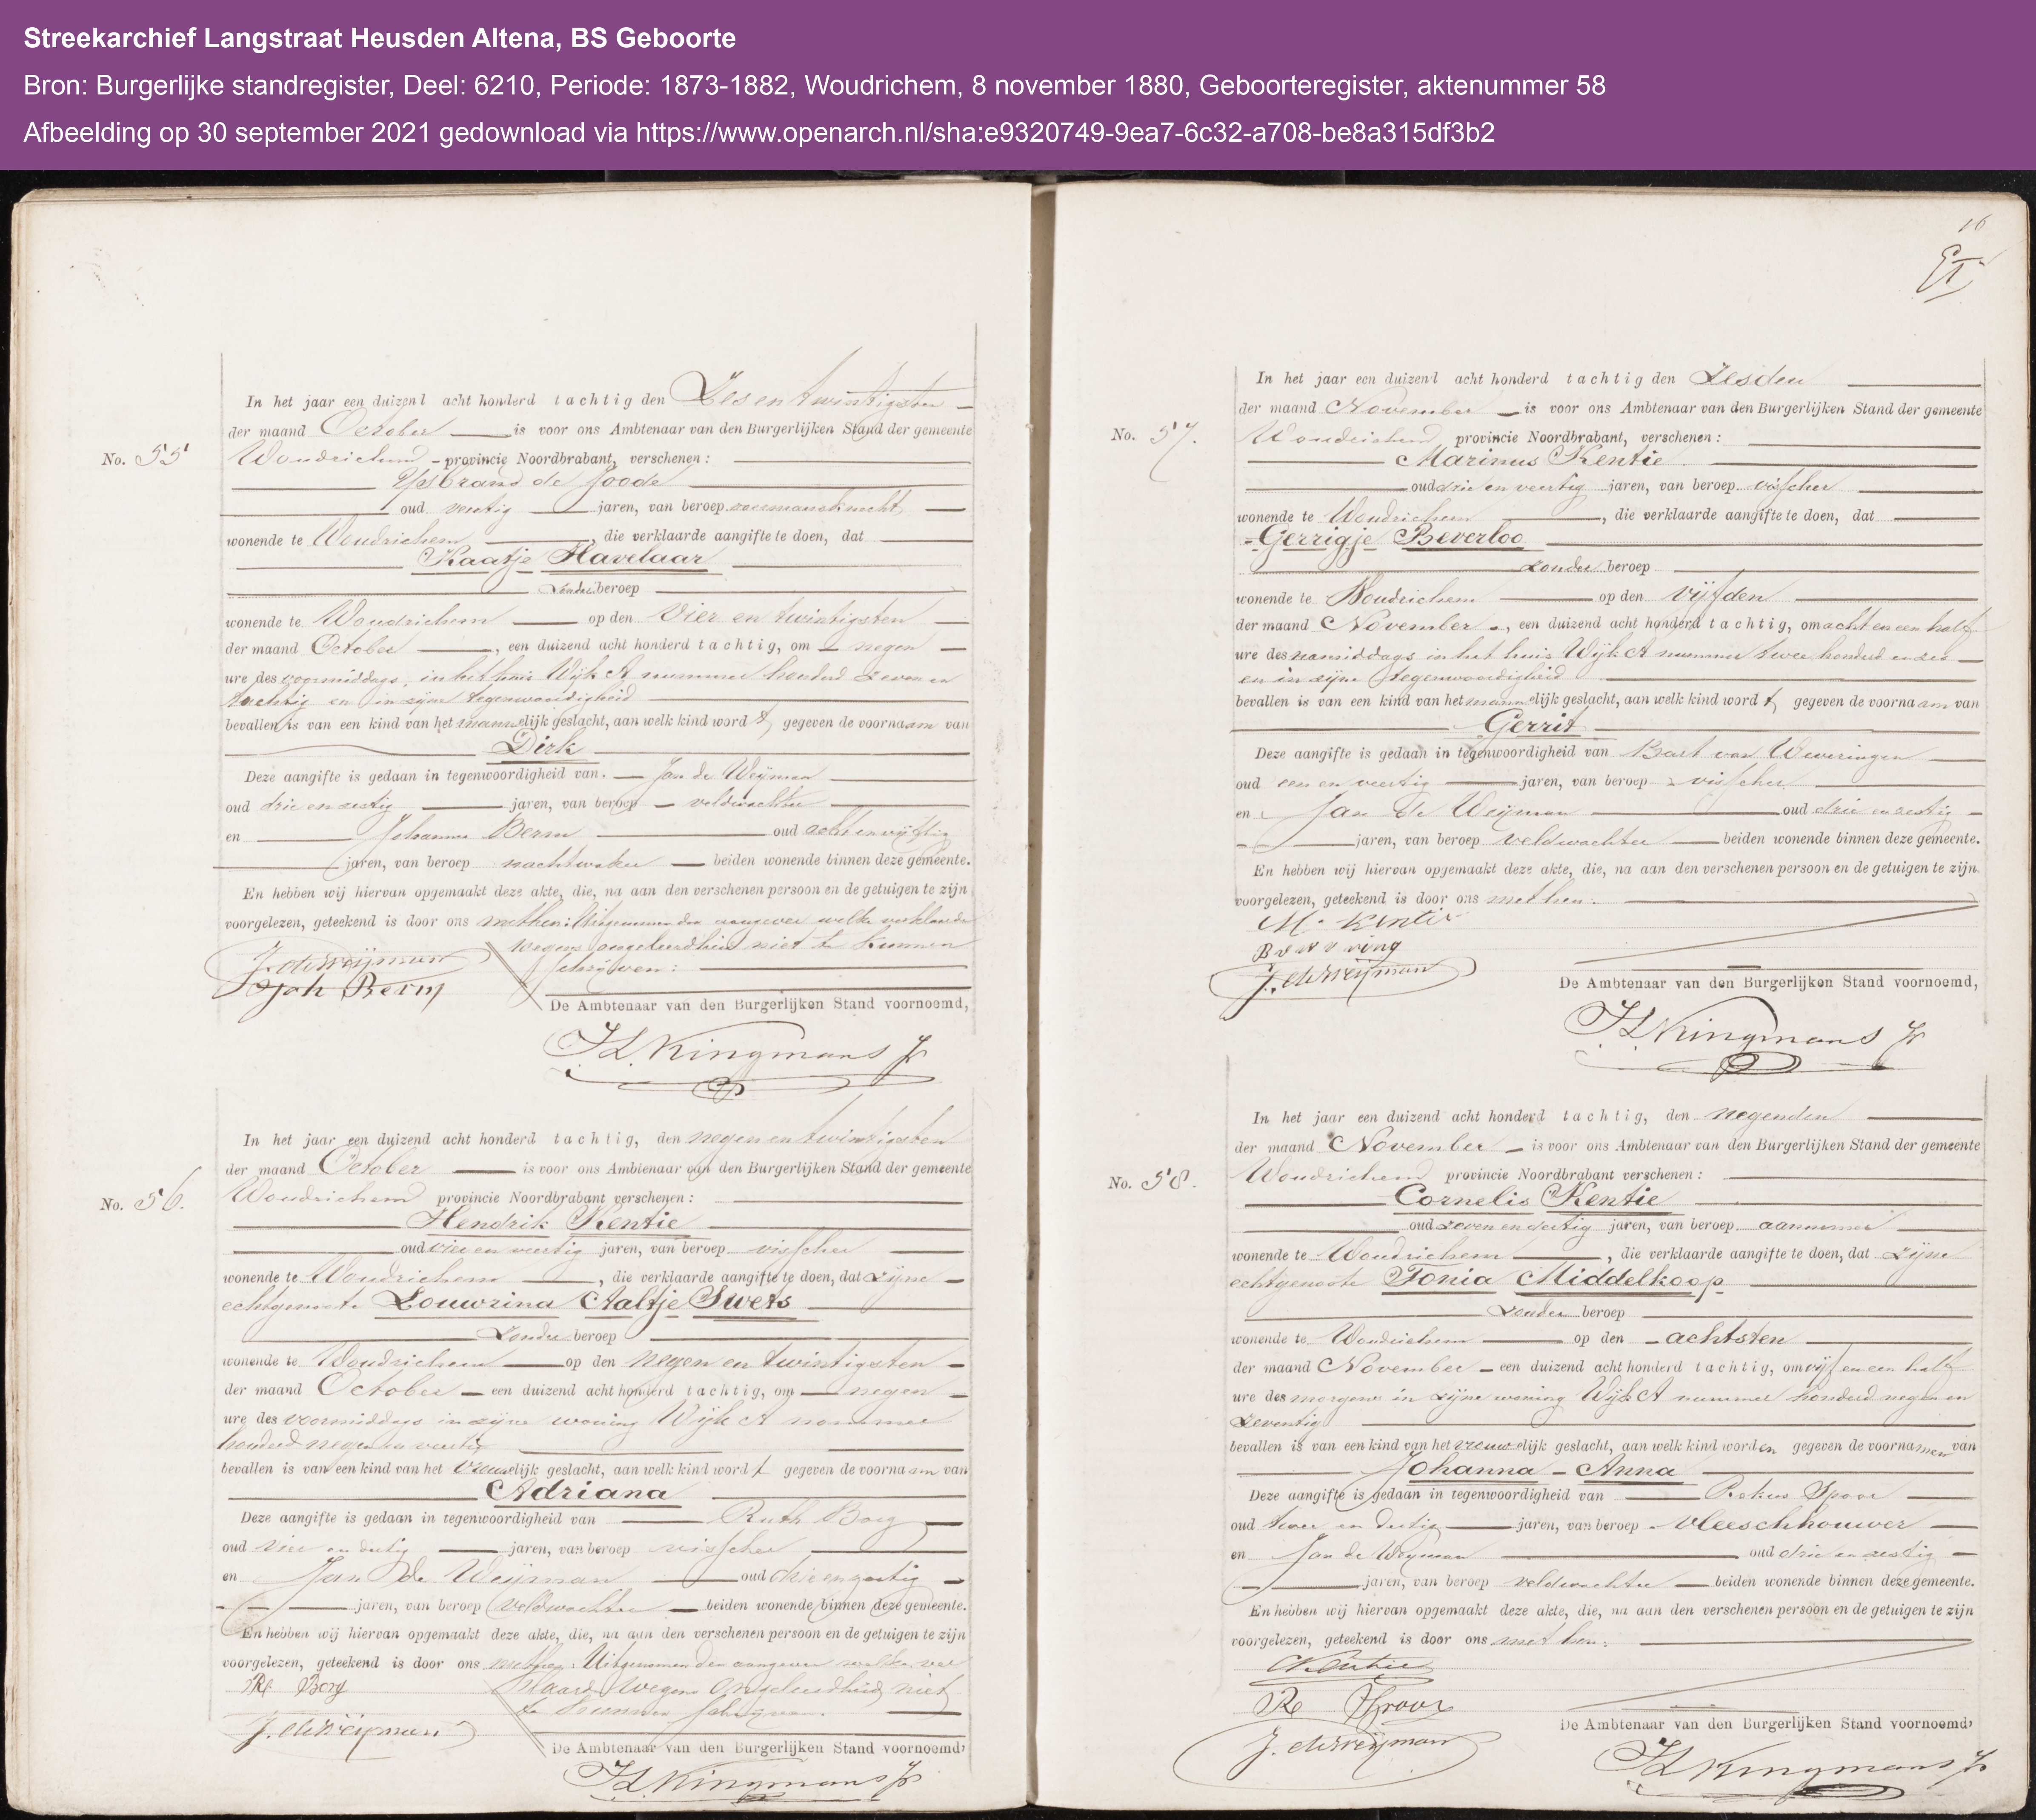 Streekarchief Langstraat Heusden Altena, BS Geboorte
Bron: Burgerlijke standregister, Deel: 6210, Periode: 1873-1882, Woudrichem, 8 november 1880, Geboorteregister, aktenummer 58
Afbeelding op 30 september 2021 gedownload via https://www.openarch.nl/sha:e9320749-9ea7-6c32-a708-be8a315df3b2
No. 55
In het jaar een duizend acht honderd tachtig den Zes en twintigsten
der maand October is voor ons Ambtenaar van den Burgerlijken Stand der gemeente
Woudrichem provincie Noordbrabant, verschenen:
Ysbrand de Joode
oud veertig jaren, van beroep
wonende te Woudrichem, die verklaarde aangifte te doen, dat
Kaatje Havelaar
zonder beroep
wonende te Woudrichem op den Vier en twintigsten
der maand October, een duizend acht honderd tachtig, om negen
ure des voormiddags, in het huis Wijk A nummer honderd zeven en
tachtig en in zijne tegenwoordigheid
bevallen is van een kind van het mannelijk geslacht, aan welk kind wordt gegeven de voornaam van
Dirk
Deze aangifte is gedaan in tegenwoordigheid van. Jan de Weijman
oud drie en zestig jaren, van beroep veldwachter
en Johannes Berm oud acht en vijftig
jaren, van beroep nachtwaker beiden wonende binnen deze gemeente.
En hebben wij hiervan opgemaakt deze akte, die, na aan den verschenen persoon en de getuigen te zijn
voorgelezen, geteekend is door ons met hen: Uitgenomen den aangever welke verklaarde
wegens ongeleerdheid niet te kunnen
schrijven:
J. de Weijman
Joh Berm
De Ambtenaar van den Burgerlijken Stand voornoemd,
Kingmans Jr
No. 56.
In het jaar een duizend acht honderd tachtig, den negen en twintigsten
der maand October is voor ons Ambtenaar van den Burgerlijken Stand der gemeente
Woudrichem provincie Noordbrabant verschenen:
Hendrik Kentie
oud vier en veertig jaren, van beroep visscher
wonende te Woudrichem, die verklaarde aangifte te doen, dat zijne
echtgenoote Louwrina Aaltje Swets
Zonder beroep
wonende te Woudrichem op den negen en twintigsten
der maand October een duizend acht honderd tachtig, om negen
ure des voormiddags in zijne woning Wijk A nommer
honderd negen en veertig
bevallen is van een kind van het Vrouwelijk geslacht, aan welk kind wordt gegeven de voornaam van
Adriana
Deze aangifte is gedaan in tegenwoordigheid van Ruth Borg
oud vier en dertig jaren, van beroep visscher
en Jan de Weijman oud drie en zestig
jaren, van beroep Veldwachter beiden wonende binnen deze gemeente.
En hebben wij hiervan opgemaakt deze akte, die, na aan den verschenen persoon en de getuigen te zijn
voorgelezen, geteekend is door ons met hen. Uitgenomen den aangever welke ver
klaard wegens Ongeleerdheid niet
te kunnen schrijven.
R Borg
J. de Weijman
De Ambtenaar van den Burgerlijken Stand voornoemd,
Kingmans Jr
16
No. 57.
In het jaar een duizend acht honderd tachtig den Zesden
der maand November is voor ons Ambtenaar van den Burgerlijken Stand der gemeente
Woudrichem provincie Noordbrabant, verschenen:
Marinus Kentie
oud drie en veertig jaren, van beroep visscher
wonende te Woudrichem, die verklaarde aangifte te doen, dat
Gerrigje Beverloo
zonder beroep
wonende te Woudrichem op den vijfden
der maand November, een duizend acht honderd tachtig, om acht en een half
ure des namiddags in het huis Wijk A nummer twee honderd en zes
en in zijne tegenwoordigheid
bevallen is van een kind van het mannelijk geslacht, aan welk kind wordt gegeven de voornaam van
Gerrit
Deze aangifte is gedaan in tegenwoordigheid van Bart van Weveringen
oud een en veertig jaren, van beroep visscher
en Jan de Weijman oud drie en zestig
jaren, van beroep veldwachter beiden wonende binnen deze gemeente.
En hebben wij hiervan opgemaakt deze akte, die, na aan den verschenen persoon en de getuigen te zijn
voorgelezen, geteekend is door ons met hen.
M. Kentie
J. de Weijman
De Ambtenaar van den Burgerlijken Stand voornoemd,
Kingmans Jr
No. 58.
In het jaar een duizend acht honderd tachtig, den negenden
der maand November is voor ons Ambtenaar van den Burgerlijken Stand der gemeente
Woudrichem provincie Noordbrabant verschenen:
Cornelis Kentie
oud zeven en dertig jaren, van beroep aannemer
wonende te Woudrichem, die verklaarde aangifte te doen, dat zijne
echtgenoote Tonia Middelkoop
Zonder beroep
wonende te Woudrichem op den achtsten
der maand November een duizend acht honderd tachtig, om vijf en een half
ure des morgens in zijne woning Wijk A nummer honderd negen en
zeventig
bevallen is van een kind van het vrouwelijk geslacht, aan welk kind worden gegeven de voornamen van
Johanna - Anna
Deze aangifte is gedaan in tegenwoordigheid van Rokus Spoor
oud twee en dertig jaren, van beroep vleeschhouwer
en Jan de Weijman oud drie en zestig
jaren, van beroep veldwachter beiden wonende binnen deze gemeente.
En hebben wij hiervan opgemaakt deze akte, die, na aan den verschenen persoon en de getuigen te zijn
voorgelezen, geteekend is door ons met hen:
CKentie
R Spoor
J. de Weijman
De Ambtenaar van den Burgerlijken Stand voornoemd,
Kingmans Jr